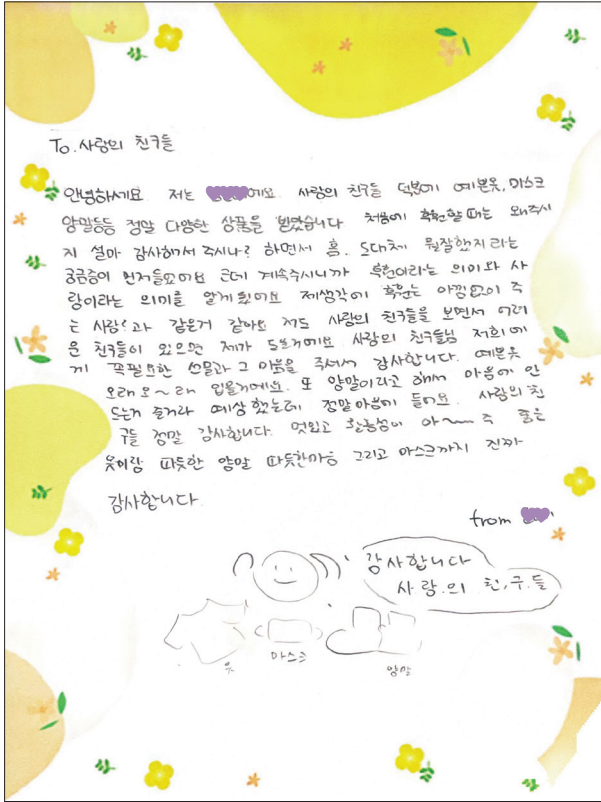 To. 사랑의 친구들
안녕하세요 저는 예요. 사랑의 친구들 덕분에 예쁜옷, 마스크
양말등등 정말 다양한 상품을 받았습니다 처음에 후원할 때는 왜주시
지 설마 감사해서 주시나? 하면서 흠. 도대체 뭘잘했지라는
궁금증이 먼저들었어요 근데 계속주시니까 후원이라는 의미와 사
랑이라는 의미를 알게 됬어요 제생각에 후원는 아낌없이 주
는 사랑과 같은거 같아요 저도 사랑의 친구들을 보면서 어려
운 친구들이 있으면 제가 도울거에요 사랑의 친구들님 저희에
게 꼭필요한 선물과 그 마음을 주셔서 감사합니다. 예쁜옷
오래 오~래 입을거에요. 또 양말이라고 해서 마음에 안
드는거 줄거라 예상했는데 정말마음에 들어요. 사랑의 친
구들 정말 감사합니다. 멋있고 활동성이 아~~주 좋은
옷이랑 따듯한 양말 따듯한마음 그리고 마스크까지 진짜
감사합니다.
from
감사합니다
사랑.의 친.구.들
옷 마스크 양말